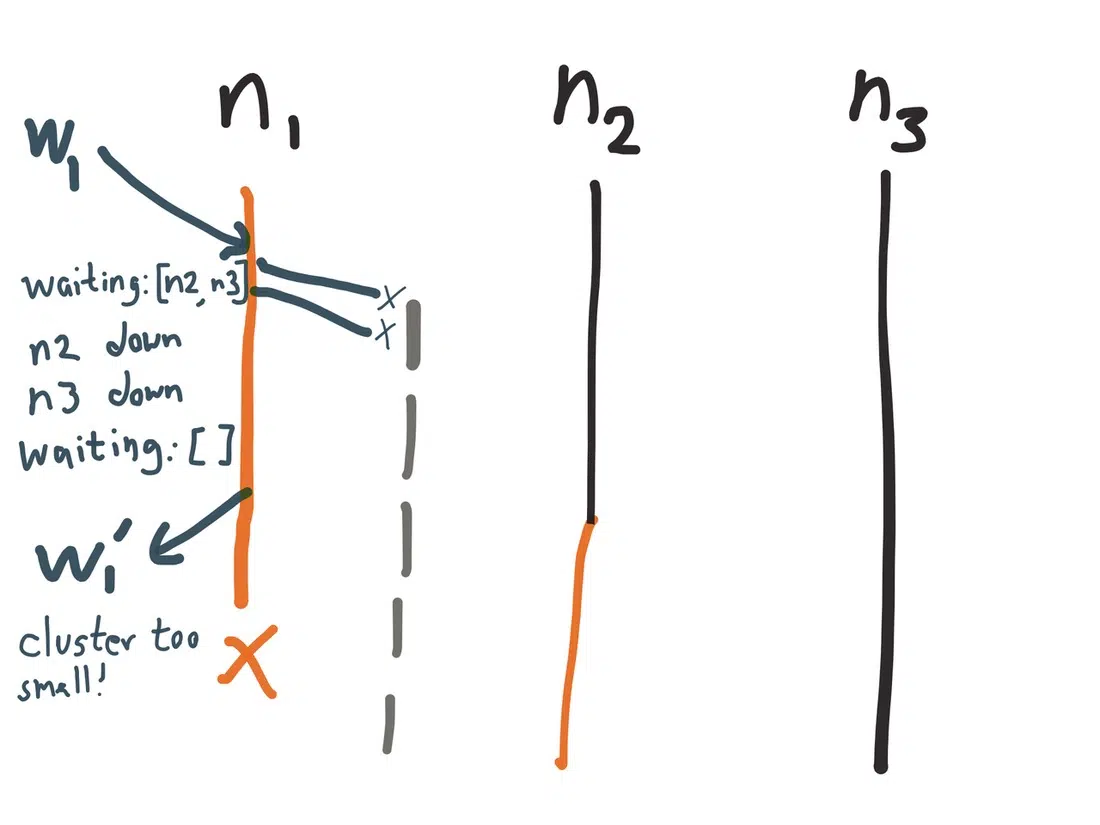 n1
n2
n3
w1
waiting:[n2, n3]
x
x
n2 down
n3 down
waiting:[ ]
w1'
cluster too
small!
X